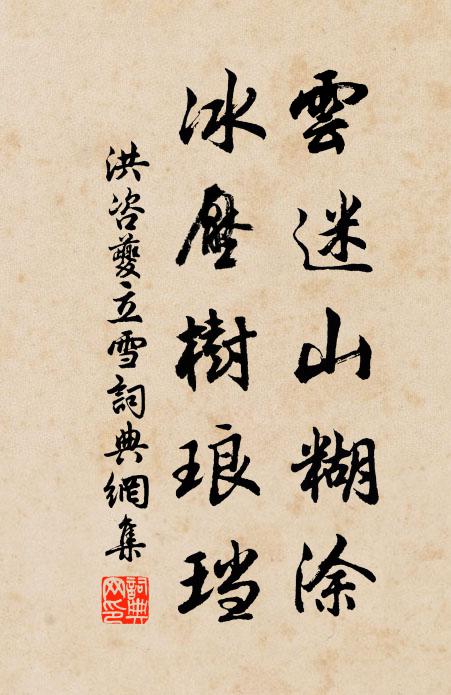 雲迷山糊涂
冰壓樹琅珰
洪咨夔立雪詞典網集
詞典網印